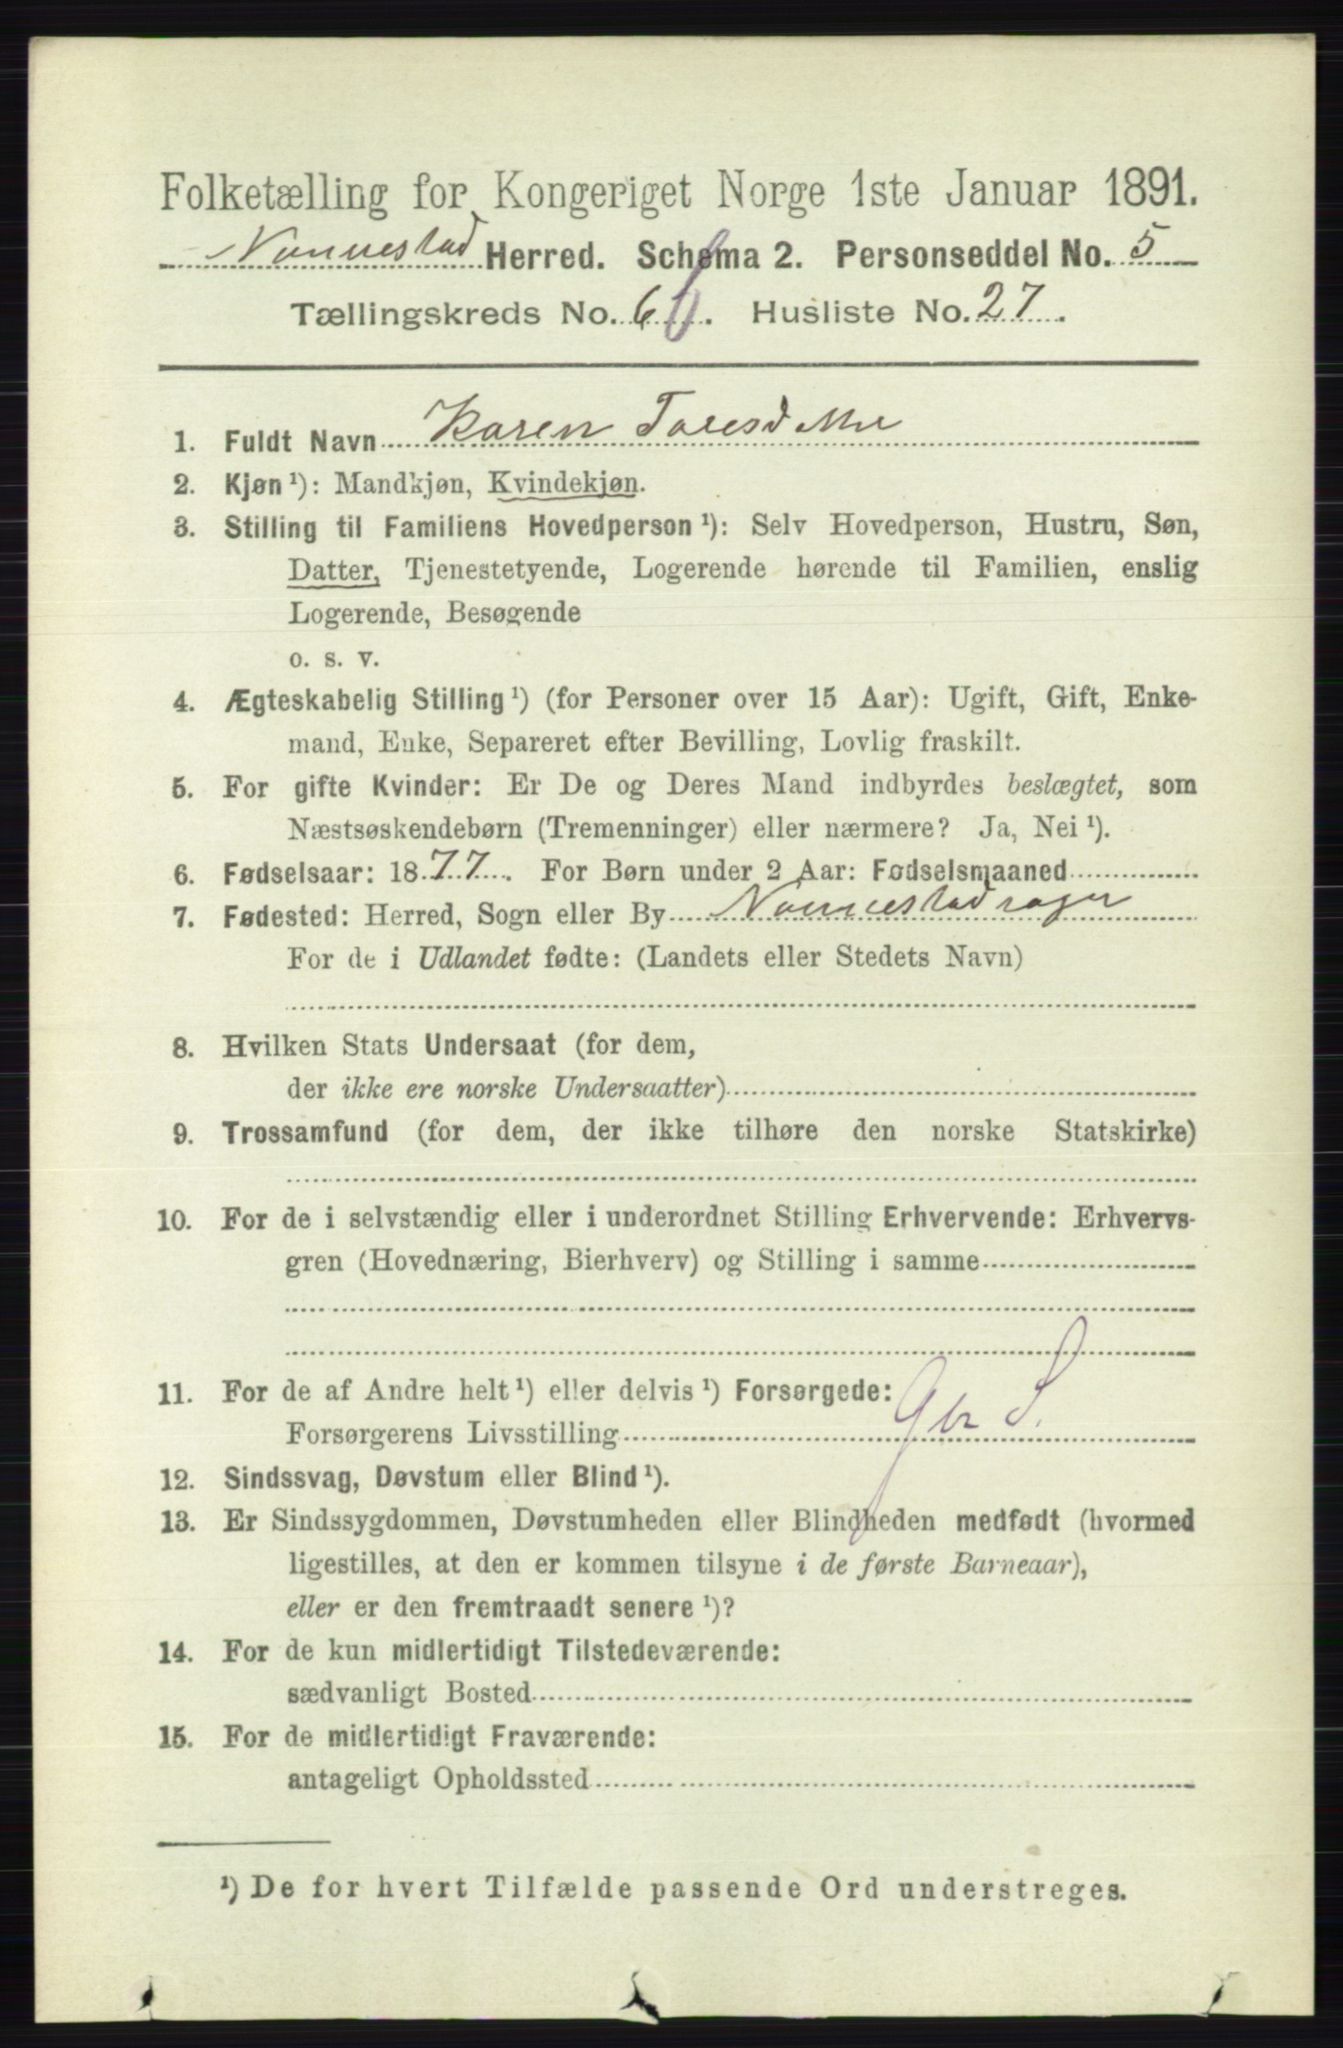 Folketælling for Kongeriget Norge 1ste Januar 1891.
Nannestad Herred. Schema 2. Personseddel No. 5
Tællingskreds No. 6. Husliste No. 27.
1. Fuldt Navn Karen Toresdatter
2. Kjøn ¹): Mandkjøn, Kvindekjøn.
3. Stilling til Familiens Hovedperson ¹): Selv Hovedperson, Hustru, Søn,
Datter, Tjenestetyende, Logerende hørende til Familien, enslig
Logerende, Besøgende
o. s. v.
4. Ægteskabelig Stilling ¹) (for Personer over 15 Aar): Ugift, Gift, Enke-
mand, Enke, Separeret efter Bevilling, Lovlig fraskilt.
5. For gifte Kvinder: Er De og Deres Mand indbyrdes beslægtet, som
Næstsøskendebørn (Tremenninger) eller nærmere? Ja, Nei ¹).
6. Fødselsaar: 1877. For Børn under 2 Aar: Fødselsmaaned
7. Fødested: Herred, Sogn eller By Nannestad sogn
For de i Udlandet fødte: (Landets eller Stedets Navn)
8. Hvilken Stats Undersaat (for dem,
der ikke ere norske Undersaatter)
9. Trossamfund (for dem, der ikke tilhøre den norske Statskirke)
10. For de i selvstændig eller i underordnet Stilling Erhvervende: Erhvervs-
gren (Hovednæring, Bierhverv) og Stilling i samme
11. For de af Andre helt ¹) eller delvis ¹) Forsørgede:
Forsørgerens Livsstilling
12. Sindssvag, Døvstum eller Blind ¹).
13. Er Sindssygdommen, Døvstumheden eller Blindheden medfødt (hvormed
ligestilles, at den er kommen tilsyne i de første Barneaar),
eller er den fremtraadt senere ¹)?
14. For de kun midlertidigt Tilstedeværende:
sædvanligt Bosted
15. For de midlertidigt Fraværende:
antageligt Opholdssted
¹) De for hvert Tilfælde passende Ord understreges.